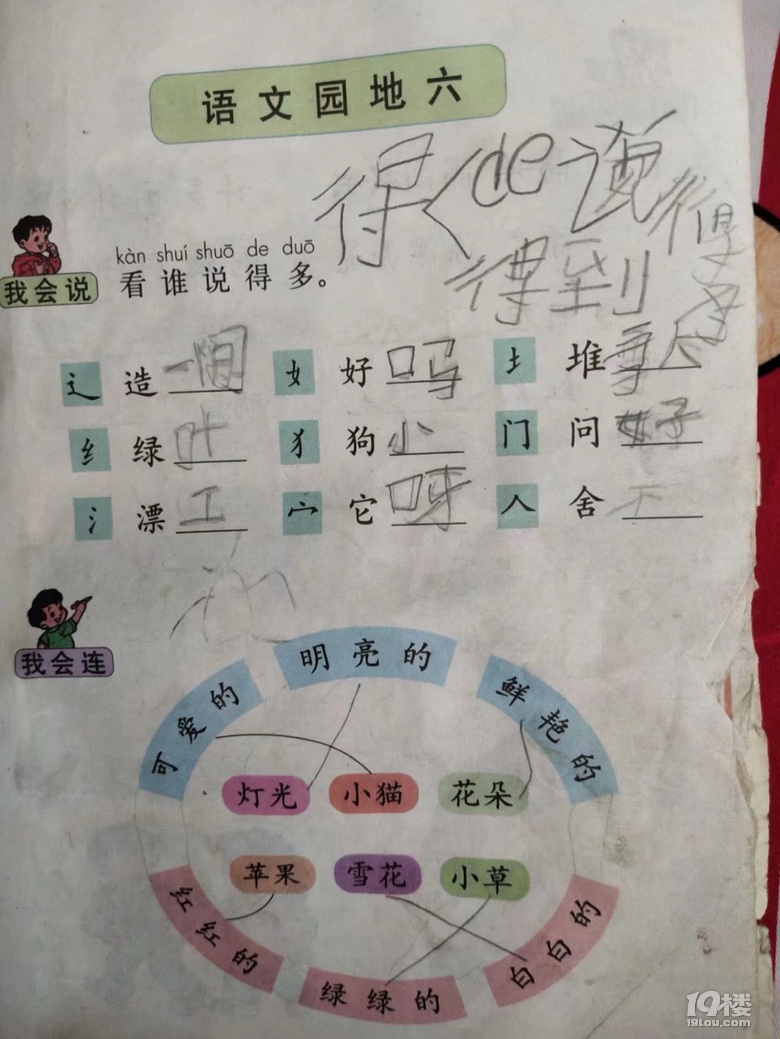 语文园地六
得 de 说得多
得到
kàn shuí shuō de duō
我会说 看谁说得多。
辶 造 一间 女 好 吗 土 堆 雪人
纟 绿 叶 犭 狗 小 门 问 好
氵 漂 工 宀 它 呀 人 舍 不
我会连
可爱的 明亮的 鲜艳的
灯光 小猫 花朵
苹果 雪花 小草
红红的 绿绿的 白白的
19楼
19lou.com